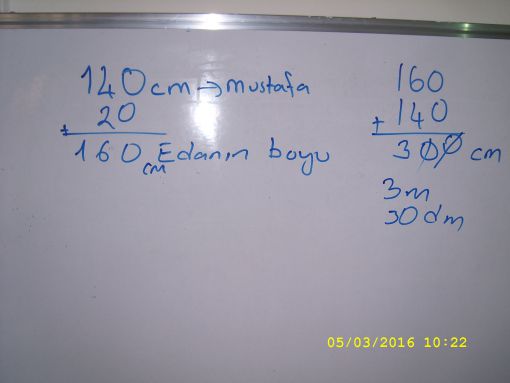 140cm→mustafa
20
+
160cm Edanın boyu
160
+ 140
300 cm
3m
30dm
05/03/2016 10:22